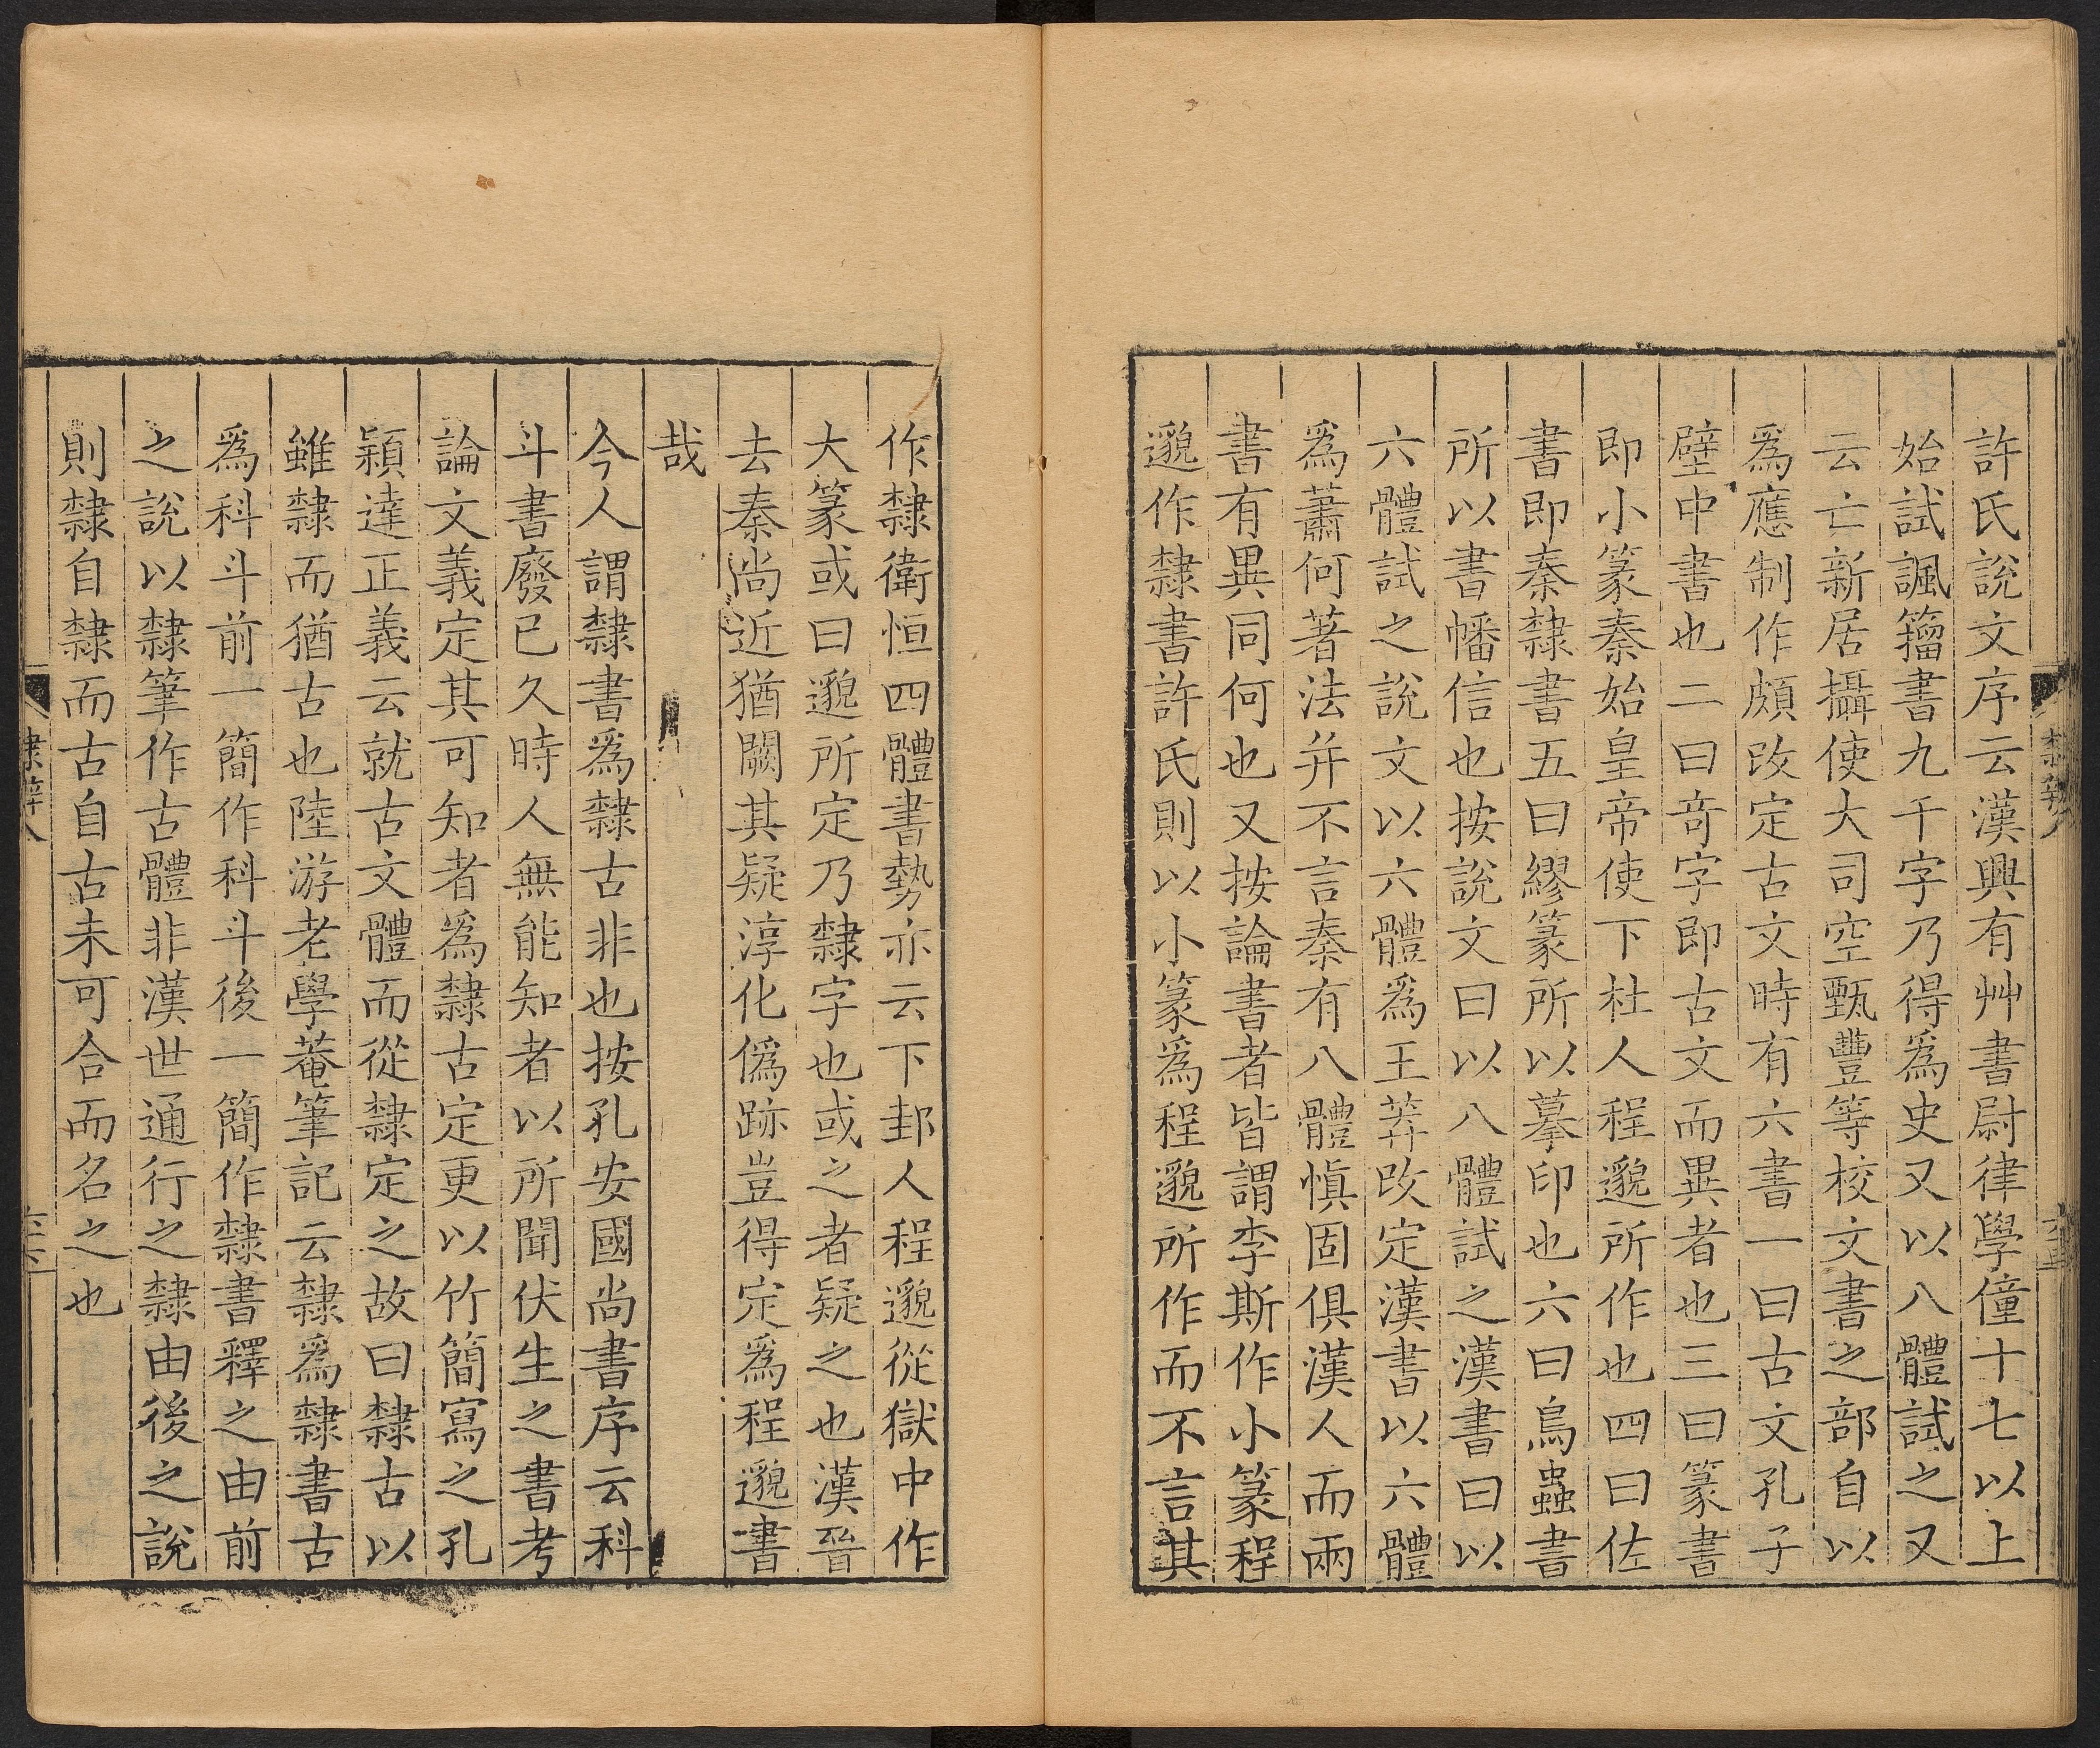 許氏說文序云漢興有艸書尉律學僮十七以上
始試諷籀書九千字乃得爲史又以八體試之又
云亡新居攝使大司空甄豐等校文書之部自以
爲應制作頗改定古文時有六書一曰古文孔子
壁中書也二曰奇字即古文而異者也三曰篆書
即小篆秦始皇帝使下杜人程邈所作也四曰佐
書即秦隸書五曰繆篆所以摹印也六曰鳥蟲書
所以書幡信也按說文曰以八體試之漢書曰以
六體試之說文以六體爲王莽改定漢書以六體
爲蕭何著法并不言秦有八體愼固俱漢人而兩
書有異同何也又按論書者皆謂李斯作小篆程
邈作隸書許氏則以小篆爲程邈所作而不言其
作隸衛恒四體書勢亦云下邽人程邈從獄中作
大篆或曰邈所定乃隸字也或之者疑之也漢晉
去秦尚近猶闕其疑淳化僞跡豈得定爲程邈書
哉
今人謂隸書爲隸古非也按孔安國尚書序云科
斗書廢已久時人無能知者以所聞伏生之書考
論文義定其可知者爲隸古定更以竹簡寫之孔
穎達正義云就古文體而從隸定之故曰隸古以
雖隸而猶古也陸游老學菴筆記云隸爲隸書古
爲科斗前一簡作科斗後一簡作隸書釋之由前
之說以隸筆作古體非漢世通行之隸由後之說
則隸自隸而古自古未可合而名之也
隸辨八